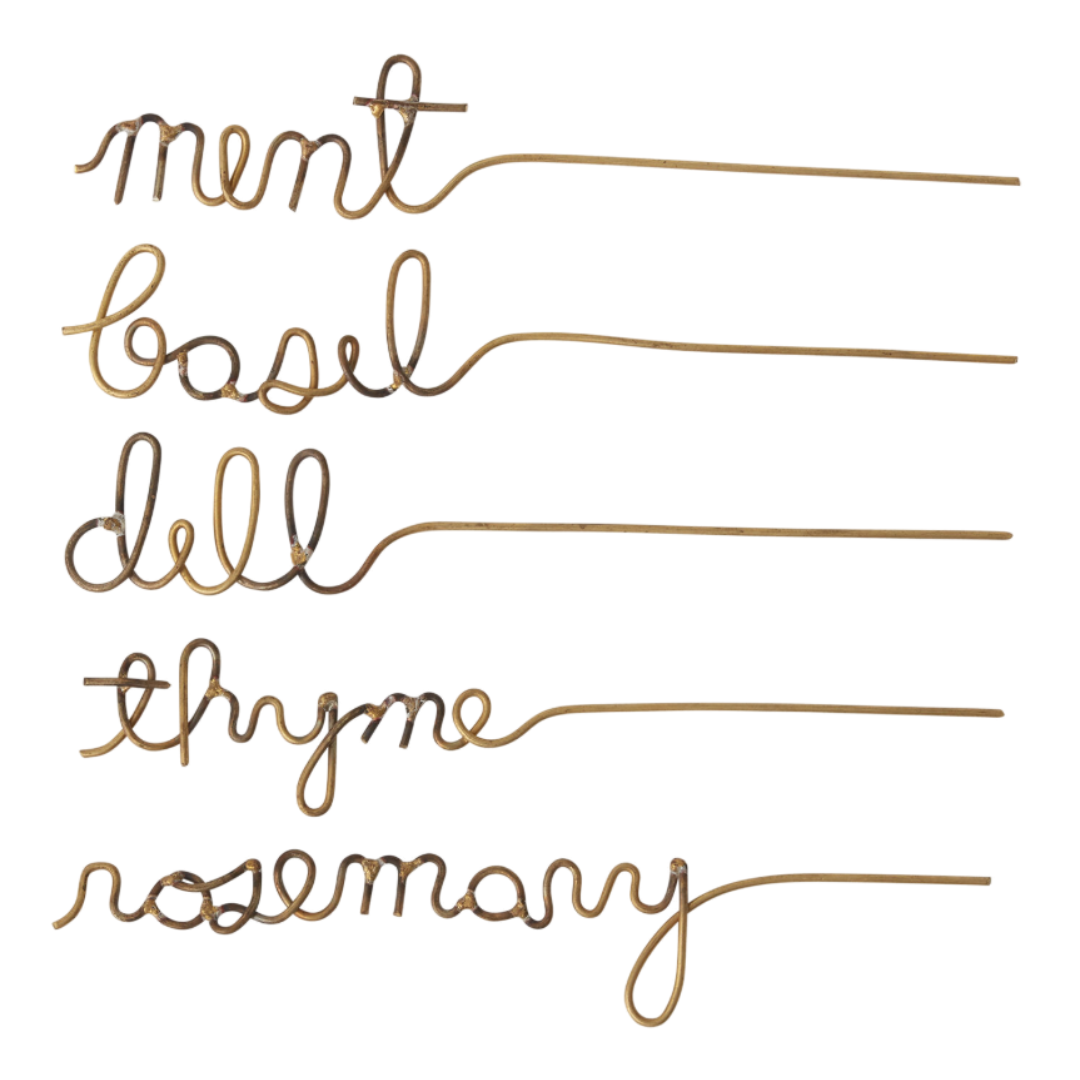 ment
basel
dell
thyme
rosemary